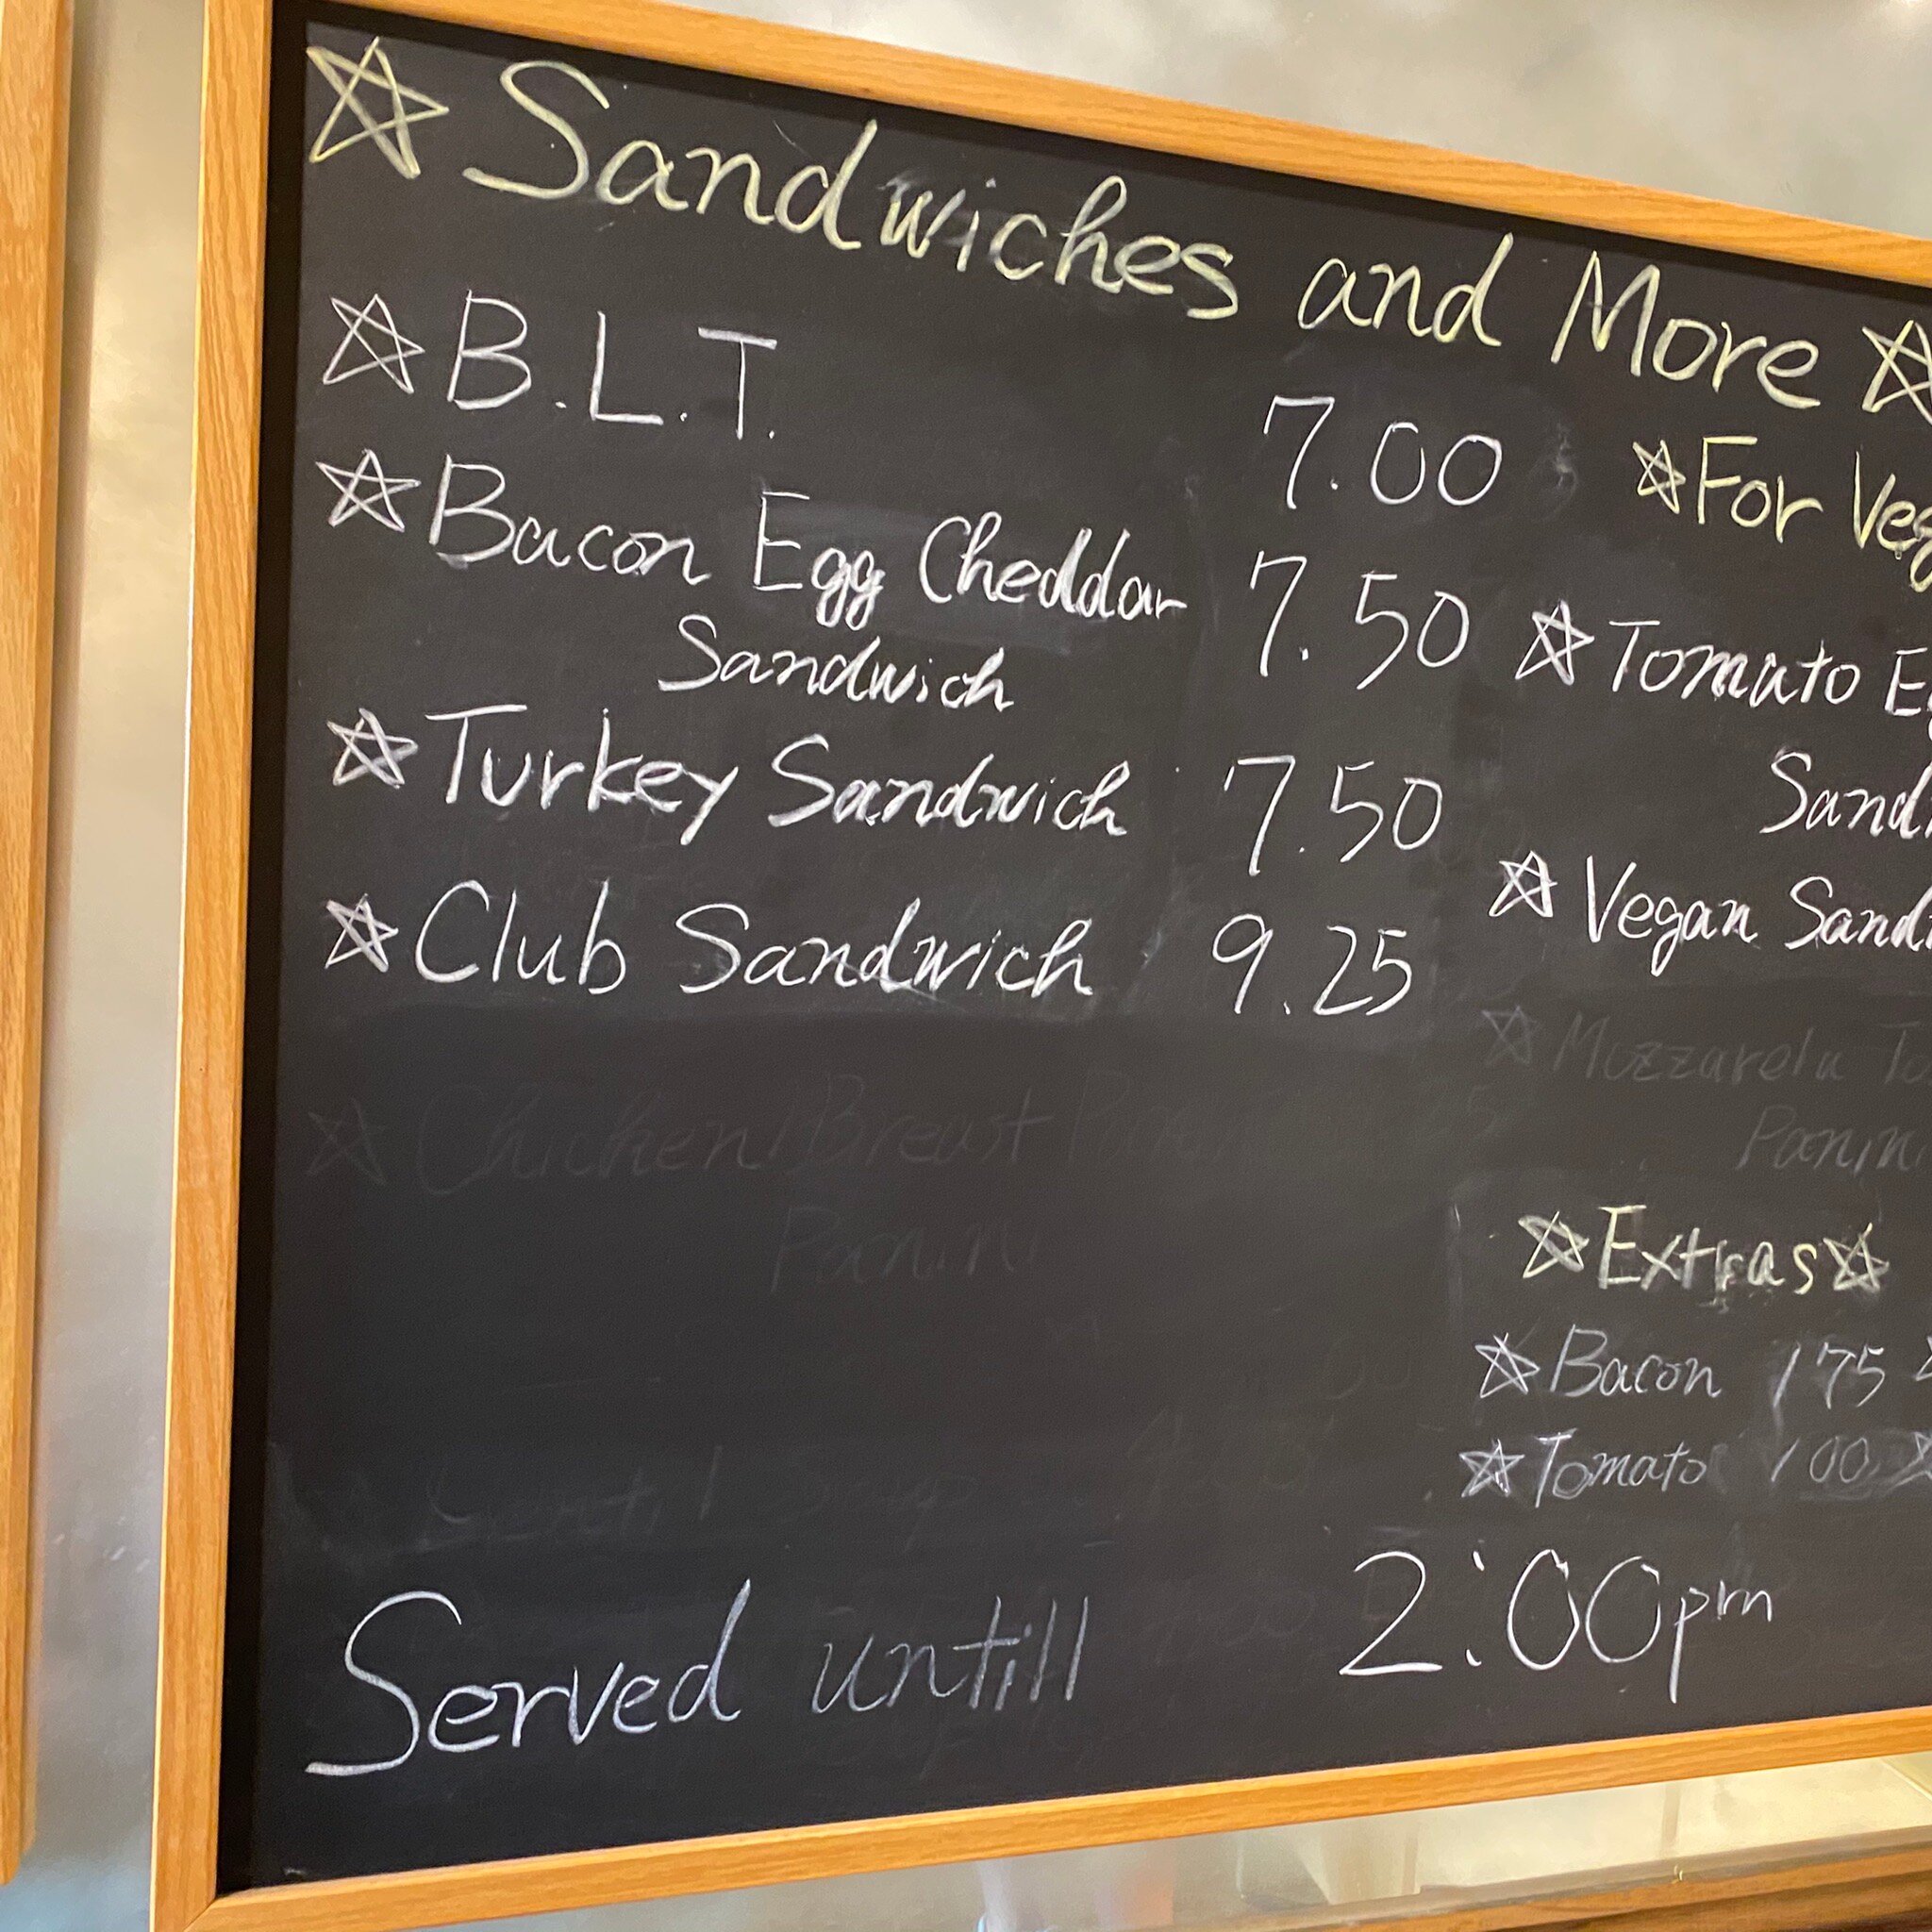 Sandwiches and More
B.L.T. 7.00
Bacon Egg Cheddar 7.50
Sandwich
Turkey Sandwich 7.50
Club Sandwich 9.25
Chicken Breast
Panini
For Veg
Tomato E
Sand
Vegan Sand
Mozzarela To
Panin
Extras
Bacon 1 75
Tomato 1 00
Served untill 2:00pm